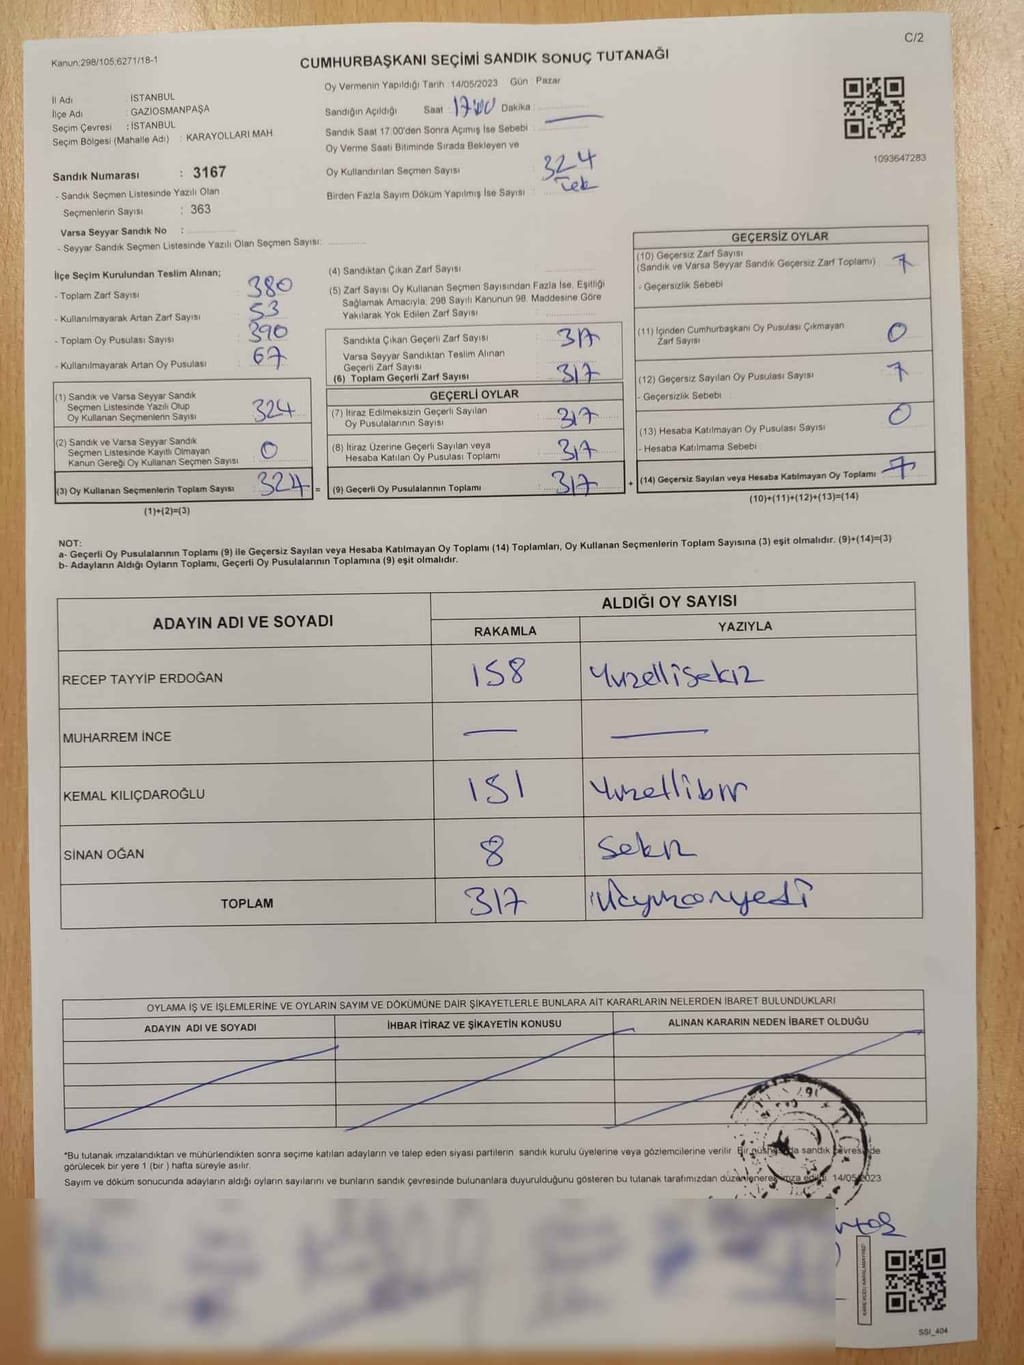 C/2
Kanun:298/105;6271/18-1
CUMHURBAŞKANI SEÇİMİ SANDIK SONUÇ TUTANAĞI
Oy Vermenin Yapıldığı Tarih 14/05/2023 Gün Pazar
İl Adı : İSTANBUL
İlçe Adı : GAZİOSMANPAŞA
Seçim Çevresi : İSTANBUL
Seçim Bölgesi (Mahalle Adı) : KARAYOLLARI MAH
Sandığın Açıldığı Saat 17:00 Dakika
Sandık Saat 17.00'den Sonra Açımış İse Sebebi
Oy Verme Saati Bitiminde Sırada Bekleyen ve
Oy Kullandırılan Seçmen Sayısı 324
Birden Fazla Sayım Döküm Yapılmış İse Sayısı Tek
1093647283
Sandık Numarası : 3167
- Sandık Seçmen Listesinde Yazılı Olan
Seçmenlerin Sayısı : 363
Varsa Seyyar Sandık No :
- Seyyar Sandık Seçmen Listesinde Yazılı Olan Seçmen Sayısı:
İlçe Seçim Kurulundan Teslim Alınan;
- Toplam Zarf Sayısı 380
- Kullanılmayarak Artan Zarf Sayısı 53
- Toplam Oy Pusulası Sayısı 390
- Kullanılmayarak Artan Oy Pusulası 67
(1) Sandık ve Varsa Seyyar Sandık
Seçmen Listesinde Yazılı Olup
Oy Kullanan Seçmenlerin Sayısı 324
(2) Sandık ve Varsa Seyyar Sandık
Seçmen Listesinde Kayıtlı Olmayan
Kanun Gereği Oy Kullanan Seçmen Sayısı 0
(3) Oy Kullanan Seçmenlerin Toplam Sayısı 324 =
(1)+(2)=(3)
(4) Sandıktan Çıkan Zarf Sayısı
(5) Zarf Sayısı Oy Kullanan Seçmen Sayısından Fazla İse, Eşitliği
Sağlamak Amacıyla, 298 Sayılı Kanunun 98. Maddesine Göre
Yakılarak Yok Edilen Zarf Sayısı
Sandıkta Çıkan Geçerli Zarf Sayısı 317
Varsa Seyyar Sandıktan Teslim Alınan
Geçerli Zarf Sayısı
(6) Toplam Geçerli Zarf Sayısı 317
GEÇERLİ OYLAR
(7) İtiraz Edilmeksizin Geçerli Sayılan
Oy Pusulalarının Sayısı 317
(8) İtiraz Üzerine Geçerli Sayılan veya
Hesaba Katılan Oy Pusulası Toplamı 317
(9) Geçerli Oy Pusulalarının Toplamı 317 +
GEÇERSİZ OYLAR
(10) Geçersiz Zarf Sayısı
(Sandık ve Varsa Seyyar Sandık Geçersiz Zarf Toplamı) 7
- Geçersizlik Sebebi
(11) İçinden Cumhurbaşkanı Oy Pusulası Çıkmayan
Zarf Sayısı 0
(12) Geçersiz Sayılan Oy Pusulası Sayısı 7
- Geçersizlik Sebebi
(13) Hesaba Katılmayan Oy Pusulası Sayısı 0
- Hesaba Katılmama Sebebi
(14) Geçersiz Sayılan veya Hesaba Katılmayan Oy Toplamı 7
(10)+(11)+(12)+(13)=(14)
NOT:
a- Geçerli Oy Pusulalarının Toplamı (9) ile Geçersiz Sayılan veya Hesaba Katılmayan Oy Toplamı (14) Toplamları, Oy Kullanan Seçmenlerin Toplam Sayısına (3) eşit olmalıdır. (9)+(14)=(3)
b- Adayların Aldığı Oyların Toplamı, Geçerli Oy Pusulalarının Toplamına (9) eşit olmalıdır.
ADAYIN ADI VE SOYADI
ALDIĞI OY SAYISI
RAKAMLA YAZIYLA
RECEP TAYYİP ERDOĞAN 158 Yüzellisekiz
MUHARREM İNCE — —
KEMAL KILIÇDAROĞLU 151 Yüzellibir
SİNAN OĞAN 8 Sekiz
TOPLAM 317 üçyüzonyedi
OYLAMA İŞ VE İŞLEMLERİNE VE OYLARIN SAYIM VE DÖKÜMÜNE DAİR ŞİKAYETLERLE BUNLARA AİT KARARLARIN NELERDEN İBARET BULUNDUKLARI
ADAYIN ADI VE SOYADI İHBAR İTİRAZ VE ŞİKAYETİN KONUSU ALINAN KARARIN NEDEN İBARET OLDUĞU
*Bu tutanak imzalandıktan ve mühürlendikten sonra seçime katılan adayların ve talep eden siyasi partilerin sandık kurulu üyelerine veya gözlemcilerine verilir. Bir nüshası da sandık çevresinde
görülecek bir yere 1 (bir ) hafta süreyle asılır.
Sayım ve döküm sonucunda adayların aldığı oyların sayılarını ve bunların sandık çevresinde bulunanlara duyurulduğunu gösteren bu tutanak tarafımızdan düzenlenerek imza edildi. 14/05/2023
T.C.
SSI_404